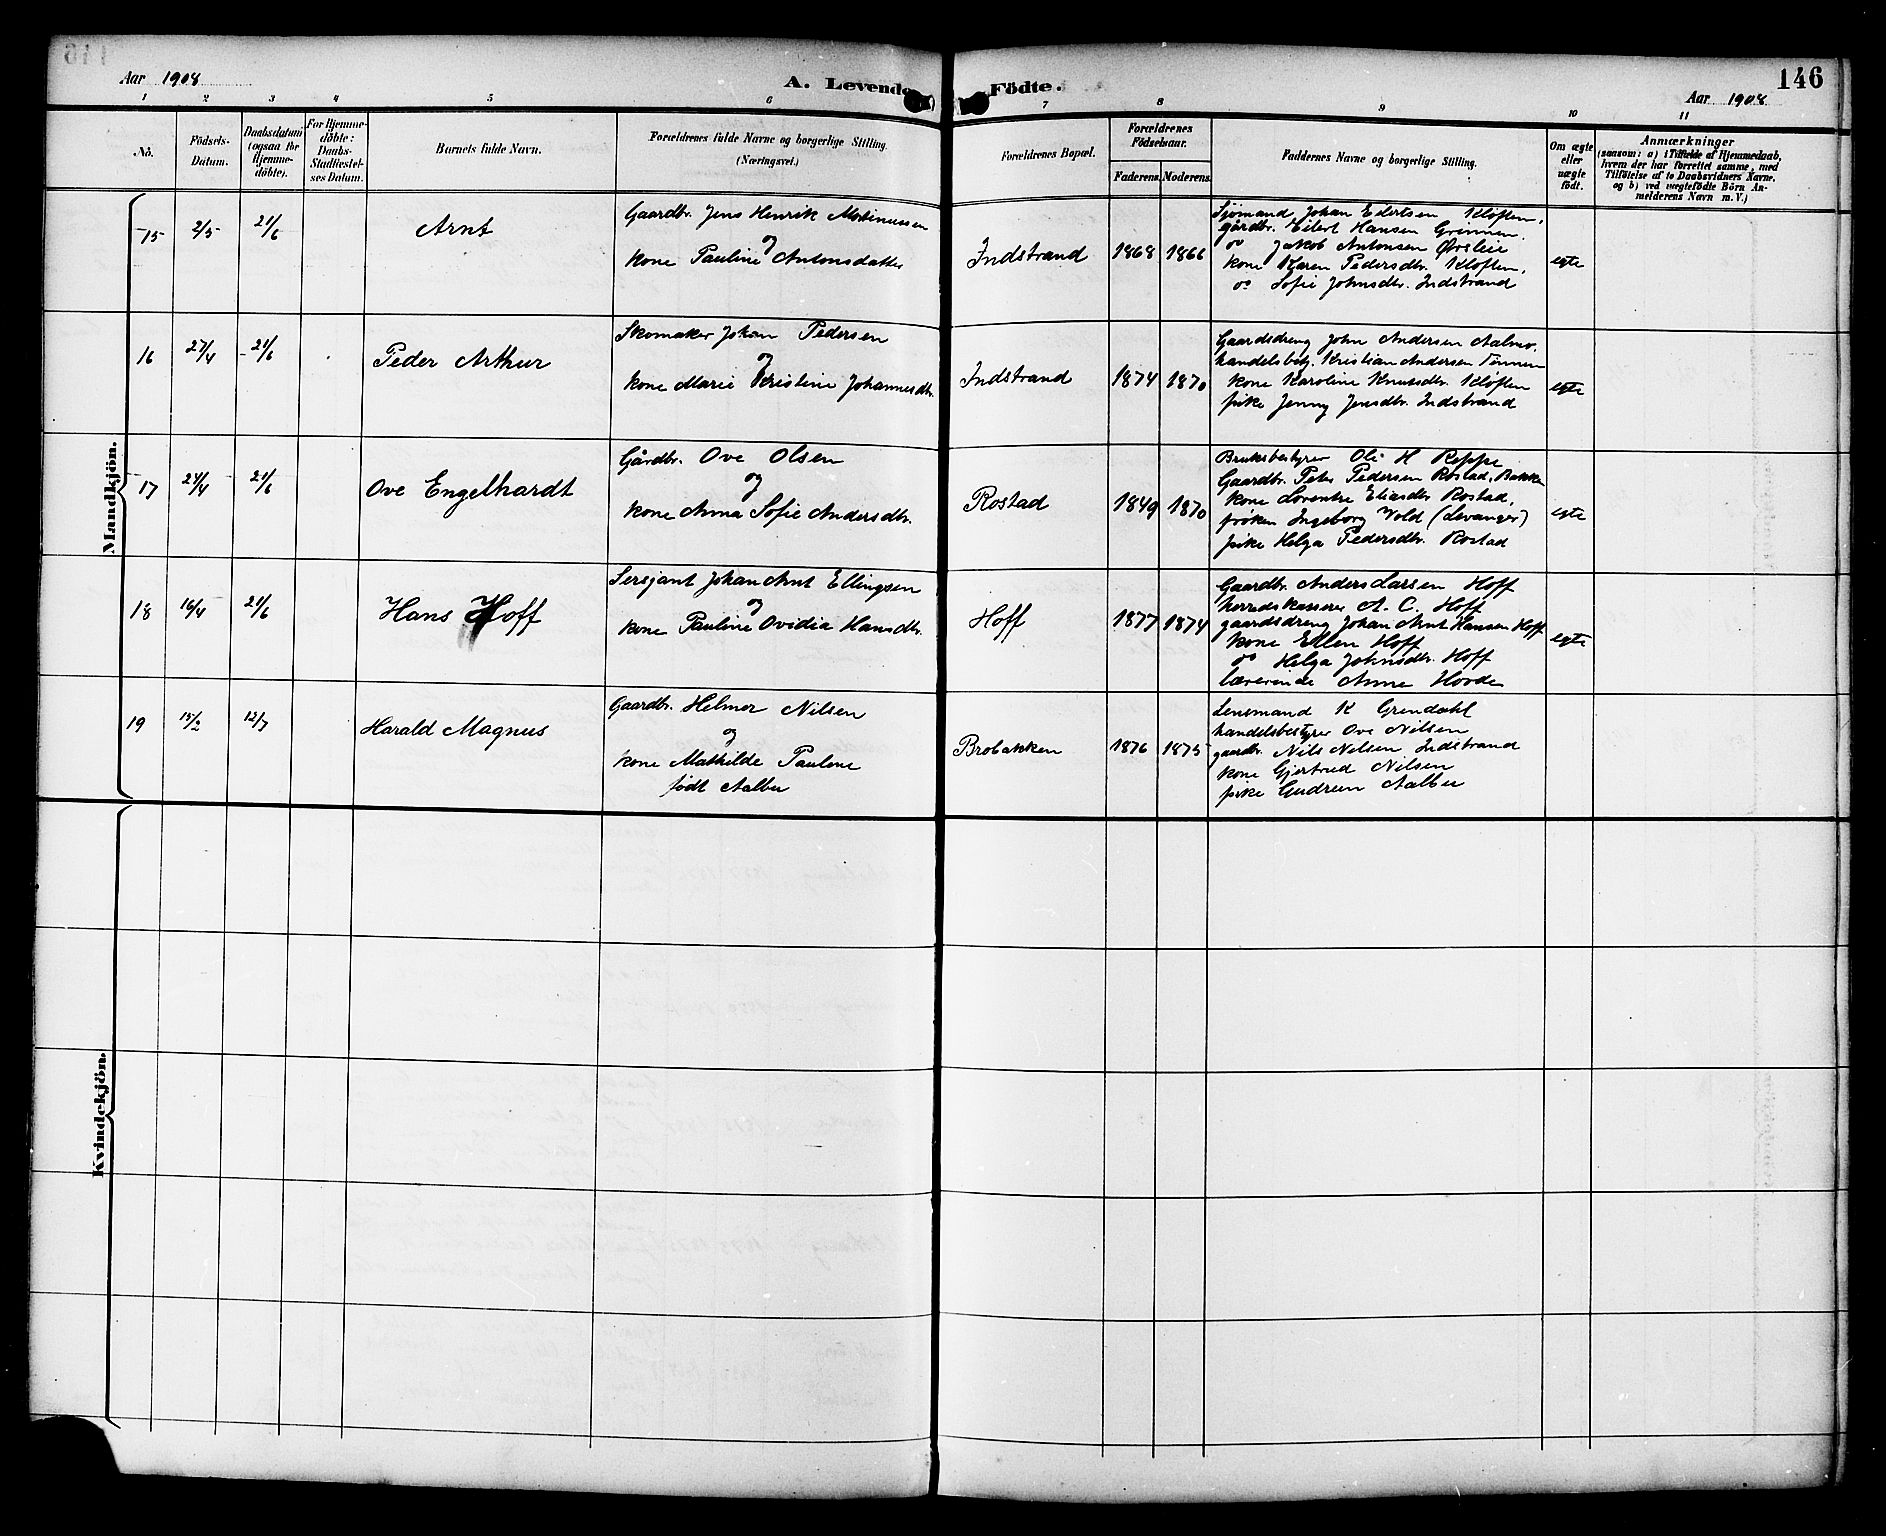 146
Aar 1908
A. Levende Födte.
Aar 1908
1 2 3 4 5 6 7 8 9 10 11
No.
Födsels-
Datum.
Daabsdatum
(ogsaa for
Hjemme-
döbte).
For Hjemme-
döbte:
Daabs-
Stadfæstel-
ses Datum.
Barnets fulde Navn.
Forældrenes fulde Navne og borgerlige Stilling.
(Næringsvei.)
Forældrenes Bopæl.
Forældrenes
Födselsaar.
Faderens. Moderens.
Faddernes Navne og borgerlige Stilling.
Om ægte
eller
uægte
födt.
Anmærkninger
(saasom: a) i Tilfælde af Hjemmedaab,
hvem der har forrettet samme, med
Tilföielse af to Daabsvidners Navne,
og b) ved uægtefödte Börn An-
melderens Navn m. V.)
Mandkjön.
15 2/5 21/6
Arnt
Gaardbr. Jens Henrik Martinussen
og
kone Pauline Antonsdatter
Indstrand
1868 1866
Sjømand Johan Eilertsen Kløften,
gårdbr. Eilert Hansen Grinnen.
do Jakob Antonsen Ørsleie
kone Karen Pedersdtr. Kløften,
do Sofie Johnsdtr. Indstrand
egte
16 27/4 21/6
Peder Arthur
Skomaker Johan Pedersen
og
kone Marie Kristine Johannesdtr.
Indstrand
1874 1870
Gaardsdreng John Andersen Aalmo.
handelsbetj. Kristian Andersen Tinnen
kone Karoline Knutsdtr. Kløften
pike Jenny Jensdtr. Indstrand
egte
17 24/4 21/6
Ove Engelhardt
Gårdbr. Ove Olsen
og
kone Anna Sofie Andersdtr.
Rostad
1849 1870
Bruksbestyrer Ole H Reppe
Gaardbr. Peter Pedersen Rostad, Bakke
kone Lorentse Eliasdtr Rostad,
frøken Ingeborg Vold (Levanger)
pike Helga Pedersdtr. Rostad
egte
18 16/4 21/6
Hans Hoff
Sersjant Johan Arnt Ellingsen
og
kone Pauline Ovidia Hansdtr.
Hoff
1877 1874
Gaardbr. Anders Larsen Hoff
herredskasserer A. C. Hoff
gaardsdreng Johan Arnt Hansen Hoff
kone Ellen Hoff
do Helga Johnsdtr. Hoff
lærerinde Anne Hovde
egte
19 15/2 12/7
Harald Magnus
Gaardbr. Helmer Nilsen
og
kone Mathilde Pauline
født Aalbu
Brobakken
1876 1875
Lensmand K Grendahl
handelsbestyrer Ove Nilsen
gaardbr. Nils Nilsen Indstrand
kone Gjertrud Nilsen
pike Gudrun Aalbu
Kvindekjön.